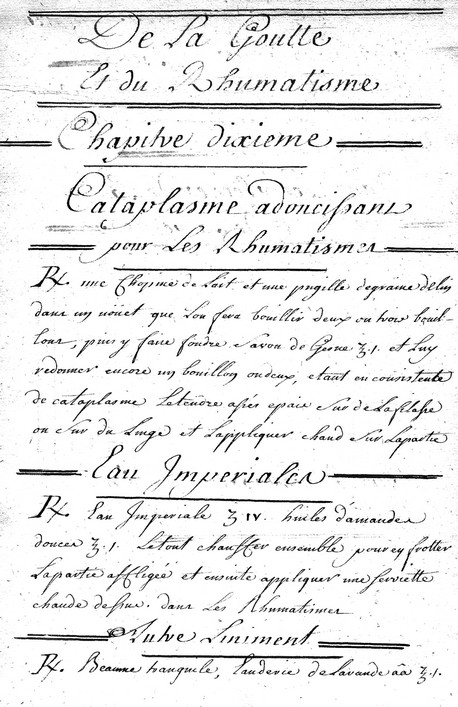 De La Goutte
Et du Rhumatisme
Chapitre dixieme
Cataplasme adoucissant
pour Les Rhumatismes
℞. une Chopine de Lait et une pugille degraine delin
dans un nouet que Lon fera bouillir deux ou trois bouil-
lons, puis y faire fondre Savon de Gesne ℥.1. et Luy
redonner encore un bouillon oudeux, etant en consistente
de cataplasme Letendre assés epais Sur de Lafilasse
ou Sur du Linge et Lappliquer chaud Sur Lapartie
Eau Imperiales
℞. Eau Imperiale ℥ IV. huiles d'amandes
douces ℥.1. Letout chauffer ensemble pour ey frotter
Lapartie affligée et ensuite appliquer une Serviette
chaude dessus. dans Les Rhumatismes
Autre Liniment
℞. Beaume tranquile, Eauderie de Lavande āā ℥.1.